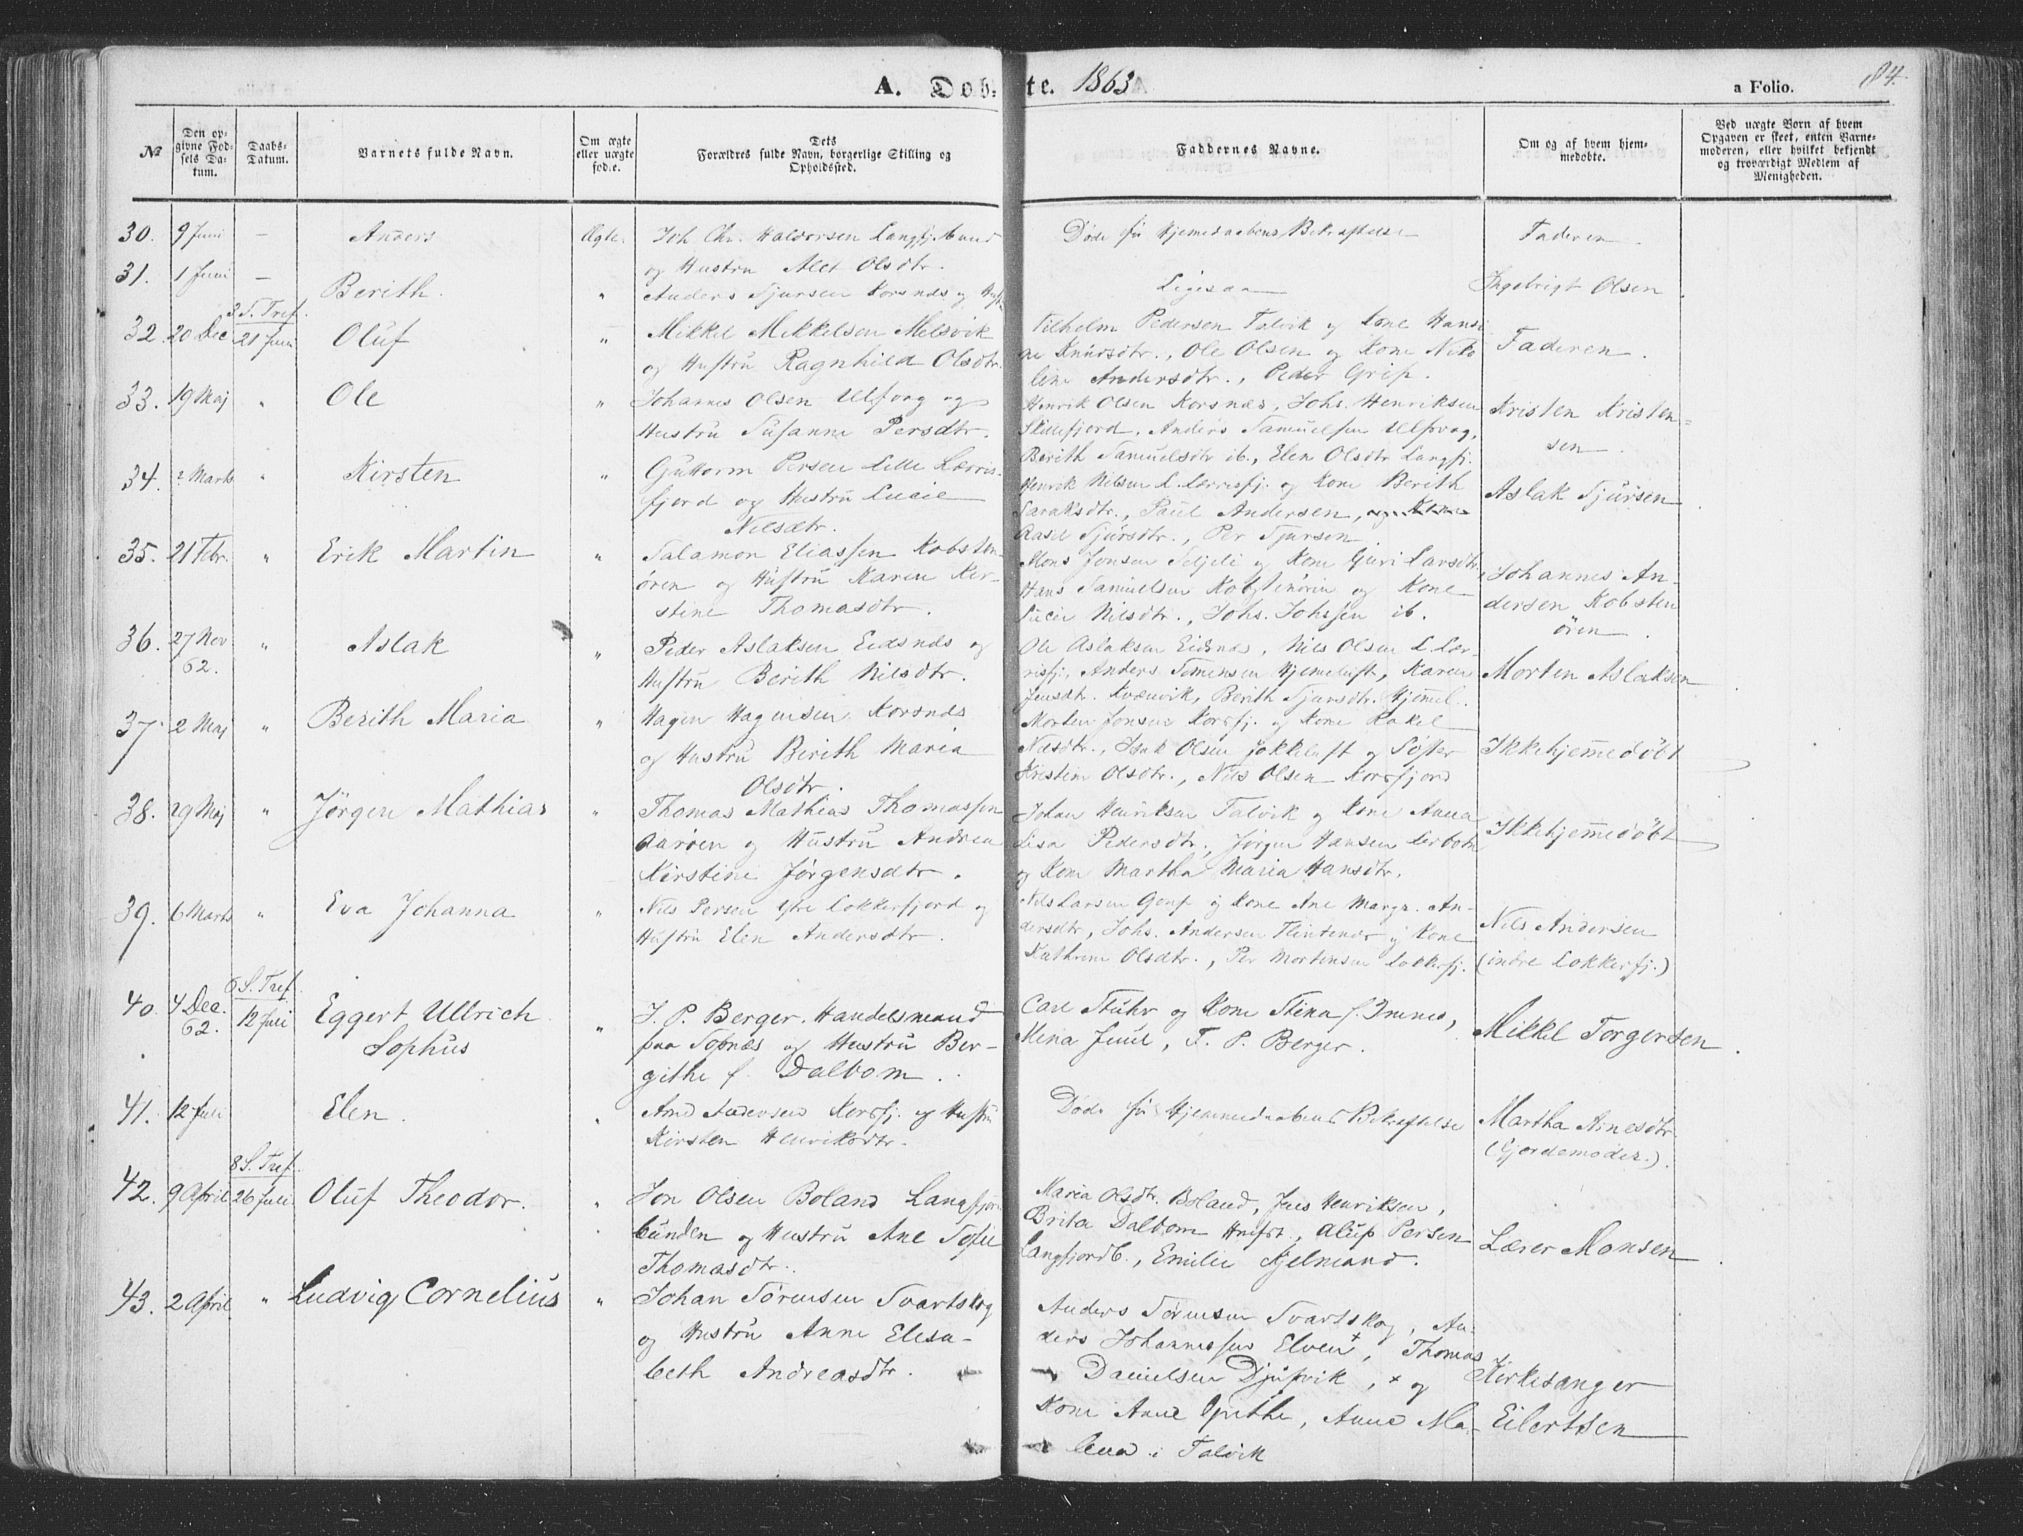 A. Døbte. 1863
a Folio. 84.
№
Den opgivne Fødsels Datum.
Daabs-Datum.
Barnets fulde Navn.
Om ægte eller uægte fød:e.
Dets Forældres fulde Navn, borgerlige Stilling og Opholdssted.
Faddernes Navne.
Om og af hvem hjemmedøbte.
Ved uægte Børn af hvem Opgaven er skeet, enten Barnemoderen, eller hvilket bekjendt og troværdigt Medlem af Menigheden.
30. 9 Juni — Anders Ægte. Joh. Chr. Haldorsen Langfj.bund Døde før Hjemedaabens Bekræftelse Faderen
og Hustru Alet Olsdtr.
31. 1 Juni — Berith. " Anders Sjursen Korsnæs og Hust. Ligesaa Ingebrigt Olsen
3 S. Tref.
32. 20 Dec 21 Juni Oluf " Mikkel Mikkelsen Melsvik Vilholm Pedersen Talvik og Kone Hansi Faderen.
og Hustru Ragnhild Olsdtr. ne Knudsdtr., Ole Olsen og Kone Niko
line Andersdtr., Peder Grip.
33. 19 Maj " Ole " Johannes Olsen Ulfvag og Henrik Olsen Korsnæs, Johs. Henriksen Kristen Kristen=
Hustru Susanne Persdtr. Skillefjord, Anders Samuelsen Ulfsvag, sen
Berith Samuelsdtr ib., Elen Olsdtr Langfj.
34. 2 Marts " Kirsten " Guttorm Persen Lille Lærris- Henrik Nilsen L. Lærrisfj. og Kone Berith Aslak Sjursen
fjord og Hustru Lucie Saraksdtr., Paul Andersen, og Kone
Nilsdtr. Aasel Sjursdtr., Per Sjursen
35. 21 Febr. " Erik Martin " Salamon Eliassen Kobsten- Mons Jonsen Seljeli og Kone Guri Larsdtr. Johannes An-
ören og Hustru Karen Ker- Hans Samuelsen Kobstenören og Kone dersen Kobsten
stine Thomasdtr. Lucie Nilsdtr., Johs. Johssen ib. ören
36. 27 Nov 62. " Aslak " Peder Aslaksen Eidsnæs og Ole Aslaksen Eidsnæs, Nils Olsen L. Lær- Morten Aslaksen
Hustru Berith Nilsdtr. risfj., Anders Simensen Hjemeluft, Karen
Jensdtr. Kvænvik, Berith Sjursdtr. Hjemel.
37. 2 Maj " Berith Maria " Hagen Hagensen Korsnæs Morten Jonsen Korsfj. og Kone Rakel Ikkehjemedøbt
og Hustru Birith Maria Nilsdtr., Isak Olsen Jökkeluft og Søster
Olsdtr. Kristine Olsdtr., Nils Olsen Korsfjord
38. 29 Maj " Jørgen Mathias " Thomas Mathias Thomassen Johan Henriksen Talvik og Kone Anna Ikkehjemmedøbt
Aarøen og Hustru Andrea Lisa Pedersdtr, Jørgen Hansen Lerbotn
Kirstine Jørgensdtr. og Kone Martha Maria Hansdtr.
39. 6 Marts " Eva Johanna " Nils Persen Ytre Lokkerfjord og Nils Larsen og Kone Ane Margr. An- Nils Andersen
Hustru Elen Andersdtr. dersdtr, Johs. Andersen Flintenæs og Kone (indre Lokkerfj.)
Kathrine Olsdtr., Per Mortensen Lokkerfj.
6 S. Tref.
40. 4 Dec. 62. 12 Juli Eggert Ullrich " J. P. Berger. Handelsmand Carl Stuhr og Kone Stina f. Mikkel Torgersen
Sophus fra Sopnæs og Hustru Ber- Mina Juul, F. P. Berger.
githe f. Dalbom.
41. 12 Juli Elen. " Arnd Andersen Korsfj. og Hustru Døde før Hjemmedaabens Bekræftelse Martha Arnesdtr
Kirsten Henriksdtr. (Gjordemoder.)
8 S. Tref
42. 9 April 26 Juli Oluf Theodor. " Jon Olsen Boland Langfjord Maria Olsdtr. Boland, Jens Henriksen, Lærer Monsen
bunden og Hustru Ane Sofie Brita Dalbom, Aluf Persen
Thomasdtr. Langfjordb., Emilie Kjelmand.
43. 2 April " Ludvig Cornelius " Johan Sørensen Svartskog Anders Sørensen Svartskog, An-
og Hustru Anne Elisa- ders Johannessen Elven+, Thomas Kirkesanger
beth Andreasdtr. Danielsen Djupvik, + og Eilertsen
Kone Anne Grethe, Anne Ma-
lena i Talvik